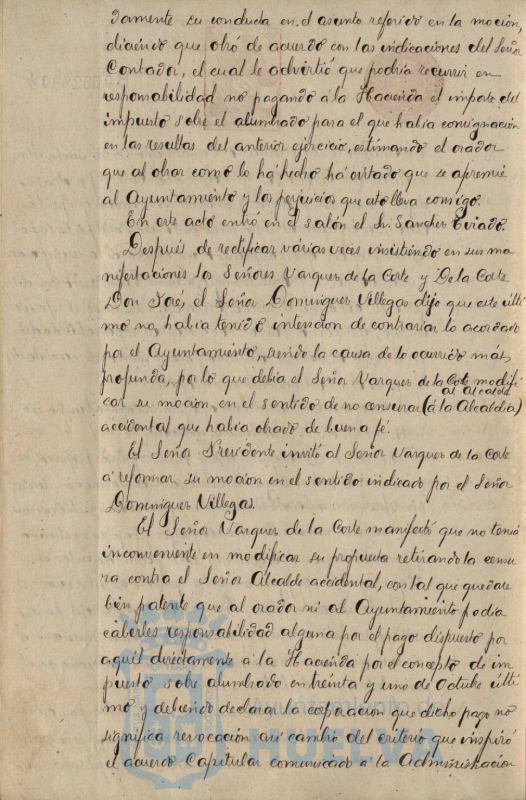 damente su conducta en el asunto referido en la moción,
diciendo que obró de acuerdo con las indicaciones del Señor
Contador, el cual le advirtió que podría recurrir en
responsabilidad no pagando á la Hacienda el importe del
impuesto sobre el alumbrado para el que había consignación
en las resultas del anterior ejercicio, estimando el orador
que al obrar como lo há hecho há evitado que se apremie
al Ayuntamiento y los perjuicios que esto lleva consigo.
En este acto entró en el salón el Sr. Sanchez Tirado.
Después de rectificar várias veces insistiendo en sus ma
nifestaciones los Señores Vazquez de la Corte y De la Corte
Don José, el Señor Dominguez Villegas dijo que este últi
mo no había tenido intencion de contrariar lo acordado
por el Ayuntamiento, siendo la causa de lo ocurrido más
profunda, por lo que debia el Señor Vazquez de la Corte modifi
car su mocion en el sentido de no censurar (á la Alcaldia) al Alcalde
accidental que habia obrado de buena fé.
El Señor Presidente invitó al Señor Vazquez de la Corte
á reformar su mocion en el sentido indicado por el Señor
Dominguez Villegas.
El Señor Vazquez de la Corte manifestó que no tenia
inconveniente en modificar su propuesta retirando la censu
ra contra el Señor Alcalde accidental, con tal que quedase
bien patente que al orador ni al Ayuntamiento podia
caberles responsabilidad alguna por el pago dispuesto por
aquél directamente á la Hacienda por el concepto de im
puesto sobre alumbrado en treinta y uno de Octubre últi
mo y debiendo declarar la corporacion que dicho pago no
significa revocación ni cambio del criterio que inspiró
el acuerdo Capitular comunicado a la Administracion
HUELVA